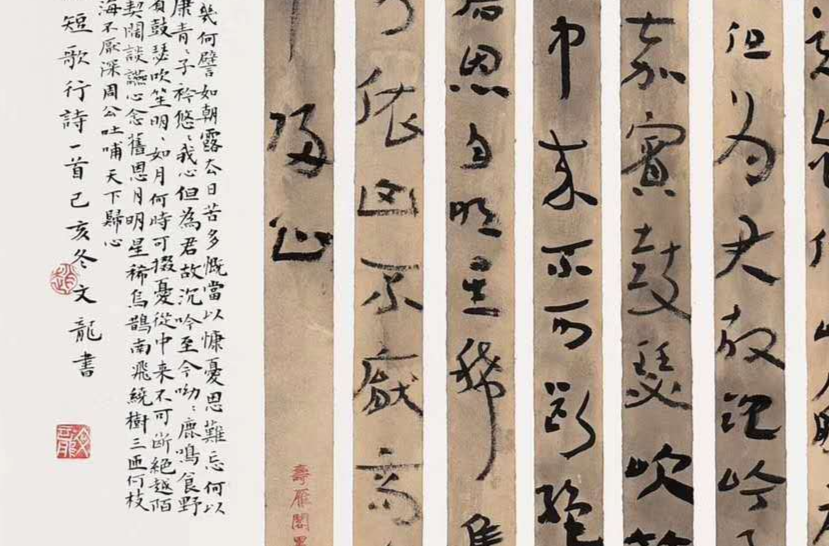 但为君故沈吟
嘉賓鼓瑟吹
中来不可断絕
恩月明星稀
依山不厭高
歸心
壽雁閣
幾何譬如朝露去日苦多慨當以慷憂思難忘何以
康青〻子衿悠〻我心但為君故沉吟至今呦〻鹿鳴食野
鼓瑟吹笙明〻如月何時可掇憂從中来不可斷絕越陌
契闊談讌心念舊恩月明星稀烏鵲南飛繞樹三匝何枝
海不厭深周公吐哺天下歸心
短歌行詩一首己亥冬文龍書